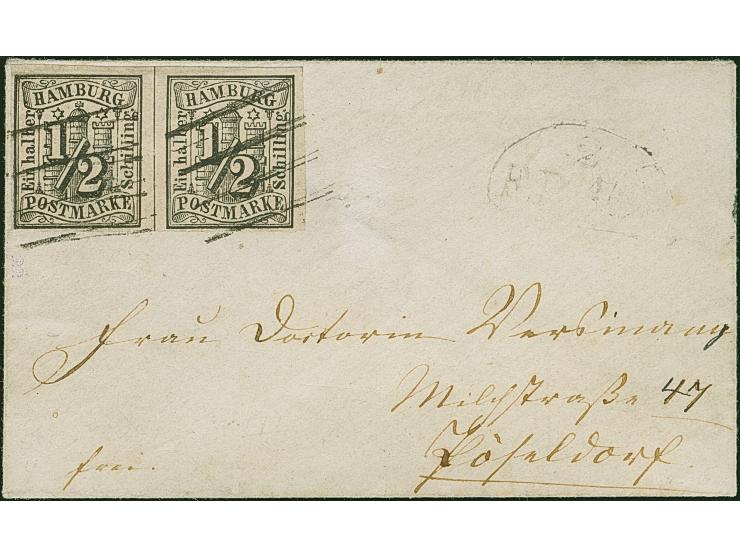 HAMBURG
Ein halber
1/2
Schilling
POSTMARKE
HAMBURG
Ein halber
1/2
Schilling
POSTMARKE
Frau Doctorin Versmann
Milchstraße 47
Pöseldorf.
frei.